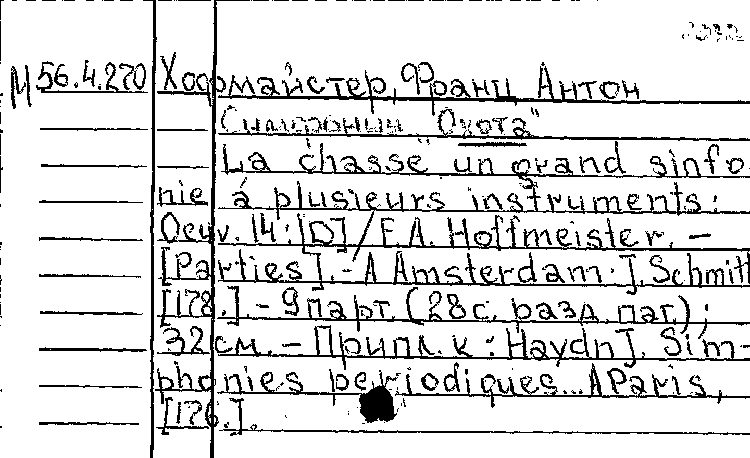 M 56.4.270 Хофмайстер, Франц Антон
Симфонии "Охота"
La chasse un grand sinfo-
nie á plusieurs instruments:
Oeuv. 14: [D] / F.A. Hoffmeister. –
[Parties]. – A Amsterdam: J. Schmitt
[178.]. – 9 парт. (28 с. разд. паг.);
32 см. – Припл. к: Haydn J. Sim-
phonies periodiques... A Paris,
[176.].